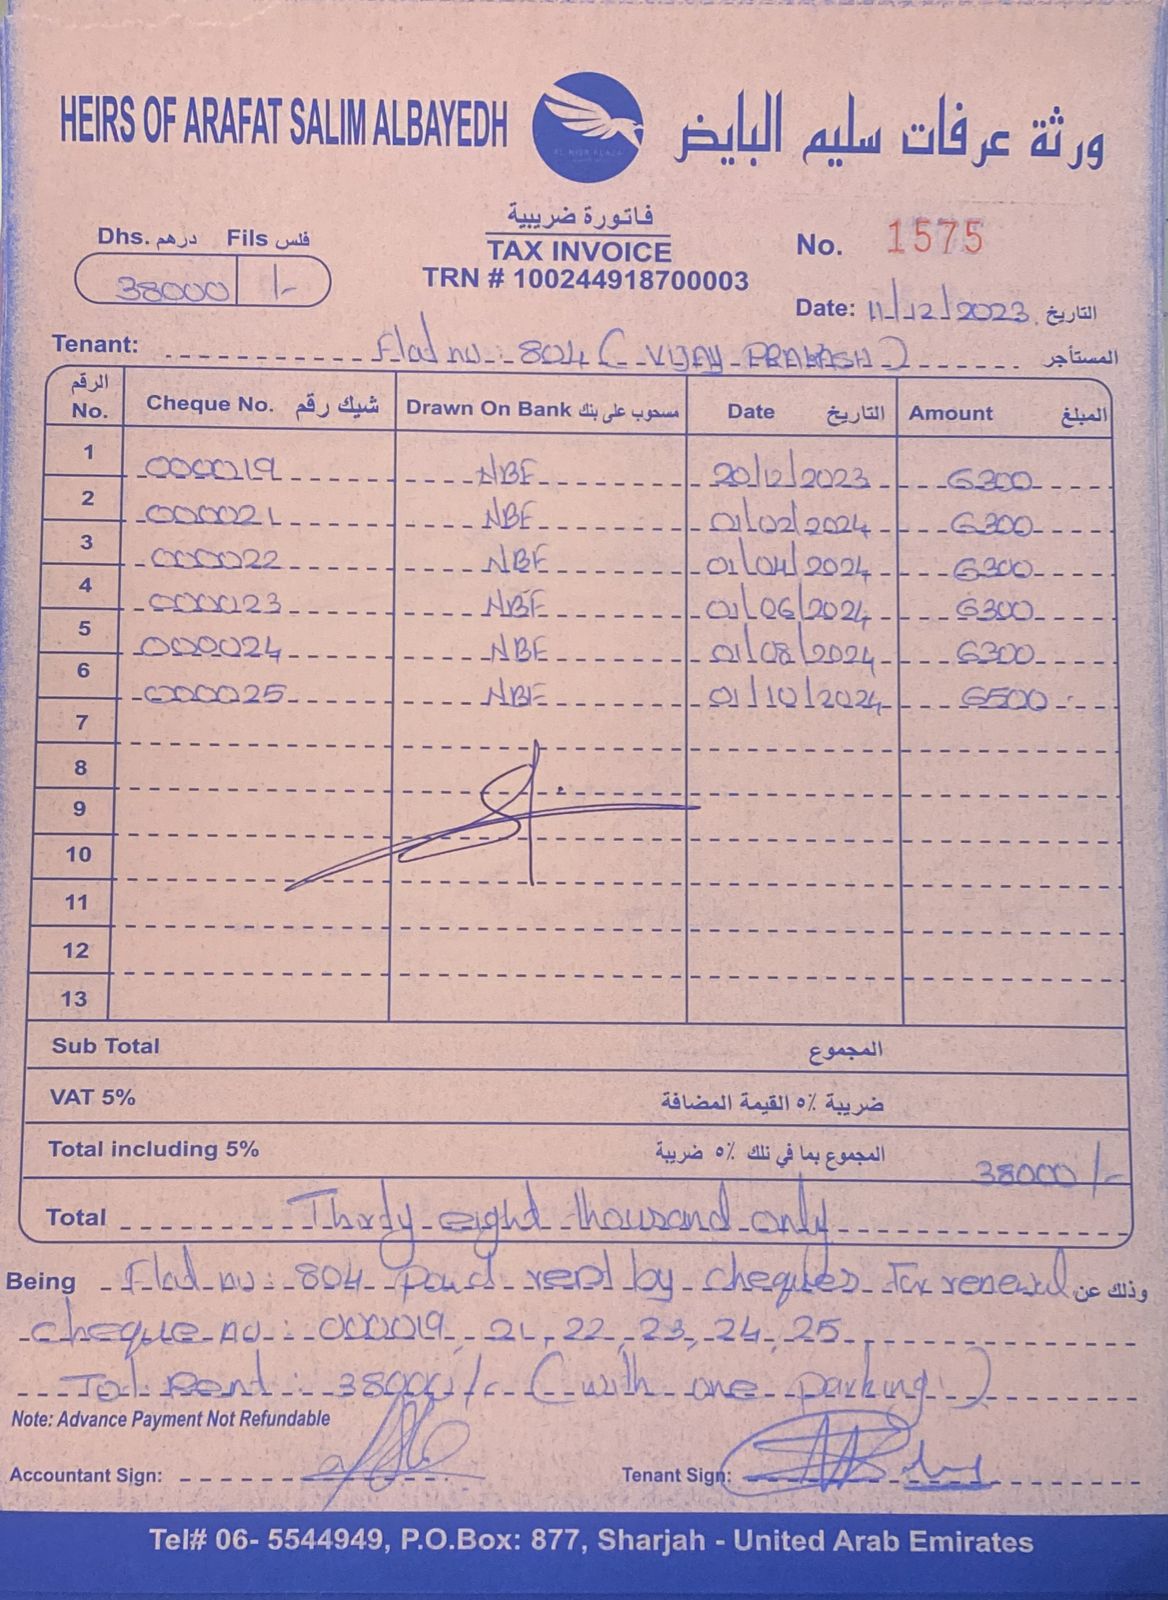 HEIRS OF ARAFAT SALIM ALBAYEDH ورثة عرفات سليم البايض
AL NISR PLAZA
فاتورة ضريبية
TAX INVOICE
TRN # 100244918700003
Dhs. درهم Fils فلس
38000 /-
No. 1575
Date: 11/12/2023 التاريخ
Tenant: Flat no: 804 ( VIJAY PRAKASH ) المستأجر
الرقم No. Cheque No. شيك رقم Drawn On Bank مسحوب على بنك Date التاريخ Amount المبلغ
1 000019 NBF 20/12/2023 6300
2 000021 NBF 01/02/2024 6300
3 000022 NBF 01/04/2024 6300
4 000023 NBF 01/06/2024 6300
5 000024 NBF 01/08/2024 6300
6 000025 NBF 01/10/2024 6500
7
8
9
10
11
12
13
Sub Total المجموع
VAT 5% ضريبة ٥٪ القيمة المضافة
Total including 5% المجموع بما في ذلك ٥٪ ضريبة 38000/-
Total Thirty eight thousand only
Being Flat no: 804 paid rent by cheques for renewal وذلك عن
cheque no: 000019, 21, 22, 23, 24, 25
Tot Rent: 38000/- ( with one parking )
Note: Advance Payment Not Refundable
Accountant Sign: Tenant Sign:
Tel# 06- 5544949, P.O.Box: 877, Sharjah - United Arab Emirates